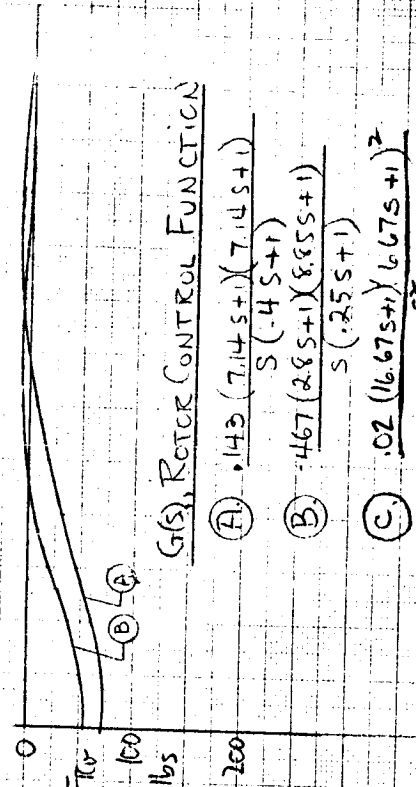 0
100
lbs
200
B
A
G(s), ROTOR CONTROL FUNCTION
A. .143 (7.14 S+1)(7.14 S+1)
S (.4 S+1)
B. .467 (2.8 S+1)(8.85 S+1)
S (.25 S+1)
C. .02 (16.67 S+1)(6.67 S+1)²